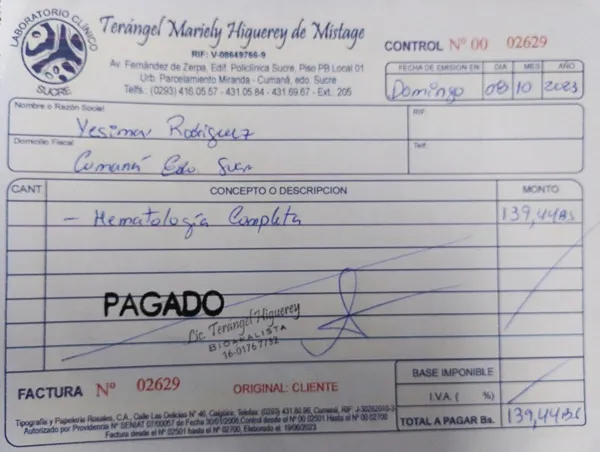 LABORATORIO CLÍNICO
SUCRE
Terángel Mariely Higuerey de Mistage
RIF: V-08649766-9
Av. Fernández de Zerpa, Edif. Policlínica Sucre, Piso PB Local 01
Urb. Parcelamiento Miranda - Cumaná, edo. Sucre
Telfs.: (0293) 416.05.67 - 431.05.84 - 431.69.67 - Ext. 205
CONTROL Nº 00 02629
FECHA DE EMISION EN DIA MES AÑO
Domingo 08 10 2023
Nombre o Razón Social RIF:
Yesimar Rodriguez
Domicilio Fiscal Telf:
Cumaná Edo.
CANT. CONCEPTO O DESCRIPCION MONTO
- Hematología Completa 139,44Bs
PAGADO
Lic. Terángel Higuerey
BIOANALISTA
BASE IMPONIBLE
I.V.A. ( %)
FACTURA Nº 02629 ORIGINAL: CLIENTE
TOTAL A PAGAR Bs. 139,44Bs
Tipografía y Papelería Rosales, C.A., Calle Las Delicias Nº 46, Caigüire, Telefax: (0293) 431.60.96, Cumaná, RIF: J-30262010-3
Autorizado por Providencia Nº SENIAT 07/00057 de Fecha 30/01/2008 Control desde el Nº 00 02501 Hasta el Nº 00 02700
Factura desde el Nº 02501 hasta el Nº 02700, Elaborado el: 19/06/2023